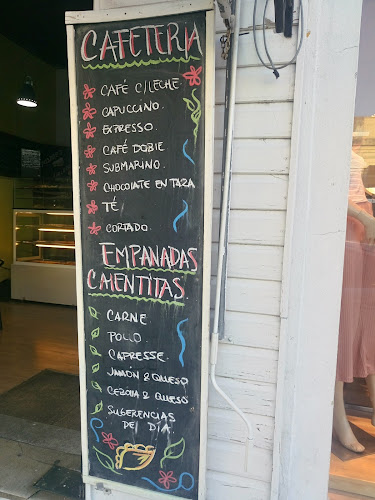 CAFETERIA
CAFÉ C/LECHE
CAPUCCINO.
EXPRESSO.
CAFÉ DOBLE
SUBMARINO.
CHOCOLATE EN TAZA
TÉ
CORTADO.
EMPANADAS
CALENTITAS.
CARNE
POLLO
CAPRESSE.
JAMÓN & QUESO
CEBOLLA & QUESO
SUGERENCIAS
DE DÍA.